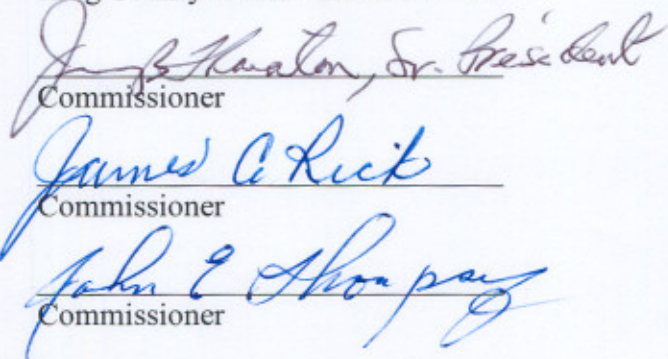 Sr. President
Commissioner
James C Rick
Commissioner
John E Thompson
Commissioner